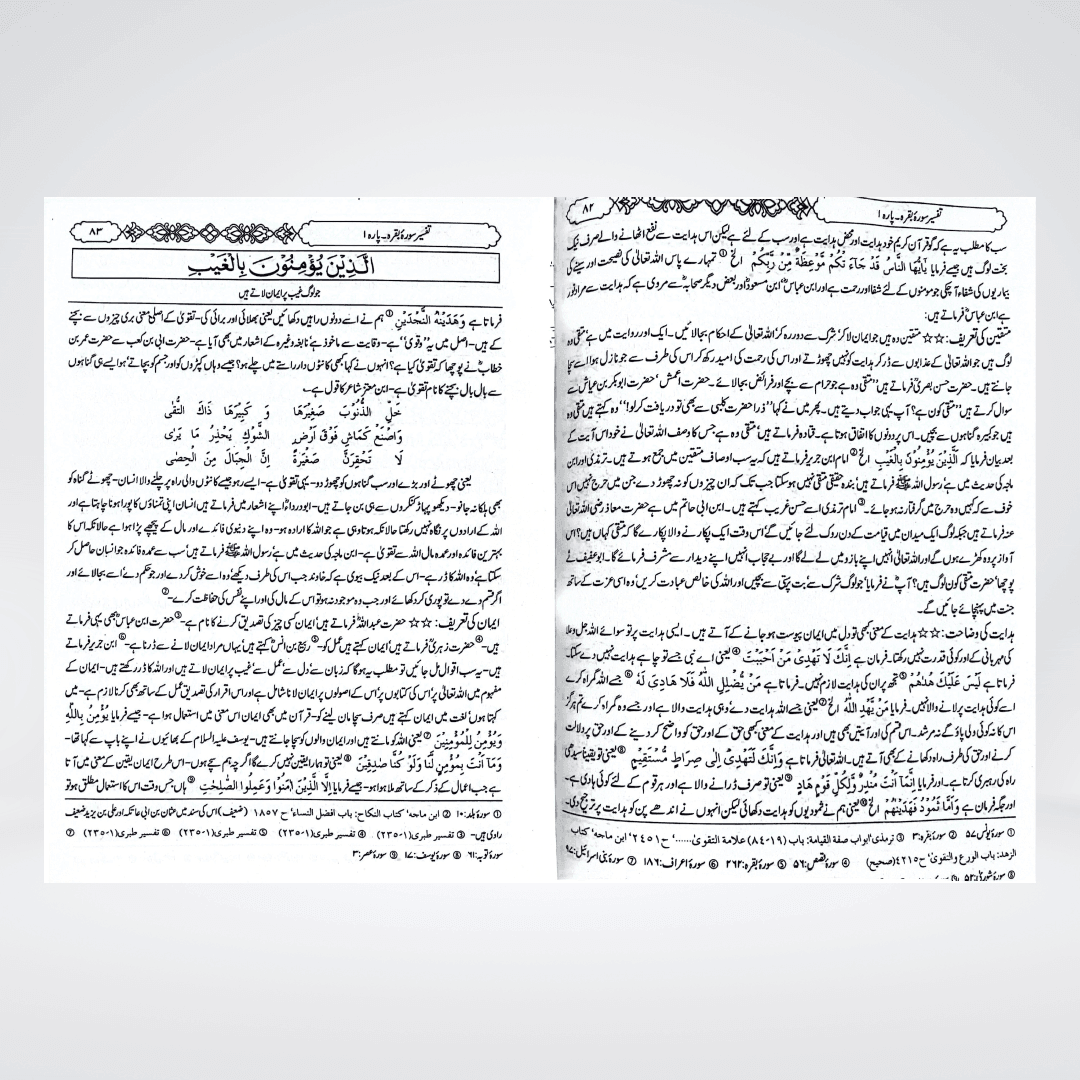 ۸۲
تفسیر سورۂ بقرہ۔ پارہ ۱
سب کا مطلب یہ ہے کہ گو قرآن کریم خود ہدایت اور محض ہدایت ہے اور سب کے لئے ہے لیکن اس ہدایت سے نفع اٹھانے والے صرف نیک
بخت لوگ ہیں جیسے فرمایا یٰٓاَیُّھَا النَّاسُ قَدْ جَآءَتْکُمْ مَّوْعِظَۃٌ مِّنْ رَّبِّکُمْ الخ ① تمہارے پاس اللہ تعالیٰ کی نصیحت اور سینے کی
بیماریوں کی شفاء آچکی جو مومنوں کے لئے شفا اور رحمت ہے اور ابن عباسؓ ابن مسعودؓ اور بعض دیگر صحابہؓ سے مروی ہے کہ ہدایت سے مراد نور
ہے ابن عباسؓ فرماتے ہیں:
متقین کی تعریف: ☆☆ متقین وہ ہیں جو ایمان لا کر شرک سے دور رہ کر اللہ تعالیٰ کے احکام بجا لائیں۔ ایک اور روایت میں ہے متقی وہ
لوگ ہیں جو اللہ تعالیٰ کے عذابوں سے ڈر کر ہدایت کو نہیں چھوڑتے اور اس کی رحمت کی امید رکھ کر اس کی طرف سے جو نازل ہوا اسے سچا
جانتے ہیں۔ حضرت حسن بصریؒ فرماتے ہیں ''متقی وہ ہے جو حرام سے بچے اور فرائض بجا لائے۔ حضرت اعمشؒ حضرت ابوبکر بن عیاشؒ سے
سوال کرتے ہیں ''متقی کون ہے؟ آپ یہی جواب دیتے ہیں۔ پھر میں نے کہا ''ذرا حضرت کلبی سے بھی تو دریافت کر لو!'' وہ کہتے ہیں متقی وہ
ہیں جو کبیرہ گناہوں سے بچیں۔ اس پر دونوں کا اتفاق ہوتا ہے۔ قتادہؒ فرماتے ہیں متقی وہ ہے جس کا وصف اللہ تعالیٰ نے خود اس آیت کے
بعد بیان فرمایا کہ الَّذِیْنَ یُؤْمِنُوْنَ بِالْغَیْبِ الخ ② امام ابن جریرؒ فرماتے ہیں کہ یہ سب اوصاف متقین میں جمع ہوتے ہیں۔ ترمذی اور ابن
ماجہ کی حدیث میں ہے رسول اللہ ﷺ فرماتے ہیں بندہ حقیقی متقی نہیں ہو سکتا جب تک کہ ان چیزوں کو نہ چھوڑ دے جن میں حرج نہیں اس
خوف سے کہ کہیں وہ حرج میں گرفتار نہ ہو جائے۔ ③ امام ترمذی اسے حسن غریب کہتے ہیں۔ ابن ابی حاتم میں ہے حضرت معاذ رضی اللہ تعالیٰ
عنہ فرماتے ہیں جبکہ لوگ ایک میدان میں قیامت کے دن روک لئے جائیں گے اس وقت ایک پکارنے والا پکارے گا کہ متقی کہاں ہیں؟ اس
آواز پر وہ کھڑے ہوں گے اور اللہ تعالیٰ انہیں اپنے بازو میں لے لے گا اور بے حجاب انہیں اپنے دیدار سے مشرف فرمائے گا۔ ابو عفیف نے
پوچھا حضرت متقی کون لوگ ہیں؟ آپؓ نے فرمایا جو لوگ شرک سے بت پرستی سے بچیں اور اللہ کی خالص عبادت کریں وہ اسی عزت کے ساتھ
جنت میں پہنچائے جائیں گے۔
ہدایت کی وضاحت: ☆☆ ہدایت کے معنی کبھی تو دل میں ایمان پیوست ہو جانے کے آتے ہیں۔ ایسی ہدایت پر تو سوائے اللہ جل وعلا
کی مہربانی کے اور کوئی قدرت نہیں رکھتا۔ فرمان ہے اِنَّکَ لَا تَھْدِیْ مَنْ اَحْبَبْتَ ④ یعنی اے نبی جسے تو چاہے ہدایت نہیں دے سکتا۔
فرماتا ہے لَیْسَ عَلَیْکَ ھُدٰھُمْ ⑤ تجھ پر ان کی ہدایت لازم نہیں۔ فرماتا ہے مَنْ یُّضْلِلِ اللّٰہُ فَلَا ھَادِیَ لَہٗ ⑥ جسے اللہ گمراہ کرے
اسے کوئی ہدایت پر لانے والا نہیں۔ فرمایا مَنْ یَّھْدِ اللّٰہُ الخ ⑦ یعنی جسے اللہ ہدایت دے وہی ہدایت والا ہے اور جسے وہ گمراہ کرے تم ہرگز
اس کا نہ کوئی ولی پاؤ گے نہ مرشد۔ اس قسم کی اور آیتیں بھی ہیں اور ہدایت کے معنی کبھی حق کے اور حق کو واضح کر دینے کے اور حق پر دلالت
کرنے اور حق کی طرف راہ دکھانے کے بھی آتے ہیں۔ اللہ تعالیٰ فرماتا ہے وَاِنَّکَ لَتَھْدِیْ اِلٰی صِرَاطٍ مُّسْتَقِیْمٍ ⑧ یعنی تو یقیناً سیدھی
راہ کی رہبری کرتا ہے۔ اور فرمایا اِنَّمَآ اَنْتَ مُنْذِرٌ وَّلِکُلِّ قَوْمٍ ھَادٍ ⑨ یعنی تو صرف ڈرانے والا ہے اور ہر قوم کے لئے کوئی ہادی ہے۔
اور جگہ فرمان ہے وَاَمَّا ثَمُوْدُ فَھَدَیْنٰھُمْ الخ یعنی ہم نے ثمودیوں کو ہدایت دکھائی لیکن انہوں نے اندھے پن کو ہدایت پر ترجیح دی۔
① سورۂ یونس: ۵۷ ② سورۂ بقرہ: ۳ ③ ترمذی، ابواب صفۃ القیامۃ: باب (۱۹-۸۴) علامۃ التقویٰ......، ح ۲۴۵۱ ابن ماجہ کتاب
الزھد: باب الورع والتقویٰ ح ۴۲۱۵ (صحیح) ④ سورۂ قصص: ۵۶ ⑤ سورۂ بقرہ: ۲۷۲ ⑥ سورۂ اعراف: ۱۸۶ ⑦ سورۂ بنی اسرائیل: ۹۷
⑧ سورۂ شوریٰ: ۵۲
۸۳
تفسیر سورۂ بقرہ۔ پارہ ۱
الَّذِیْنَ یُؤْمِنُوْنَ بِالْغَیْبِ
جو لوگ غیب پر ایمان لاتے ہیں
فرماتا ہے وَھَدَیْنٰہُ النَّجْدَیْنِ ① ہم نے اسے دونوں راہیں دکھائیں یعنی بھلائی اور برائی کی۔ تقویٰ کے اصلی معنی بری چیزوں سے بچنے
کے ہیں۔ اصل میں یہ ''وقویٰ'' ہے۔ وقایت سے ماخوذ ہے نابغہ وغیرہ کے اشعار میں بھی آیا ہے۔ حضرت ابی بن کعبؓ سے حضرت عمر بن
خطابؓ نے پوچھا کہ تقویٰ کیا ہے؟ انہوں نے کہا کبھی کانٹوں دار راستے میں چلے ہو؟ جیسے وہاں کپڑوں کو اور جسم کو بچاتے ہو ایسے ہی گناہوں
سے بال بال بچنے کا نام تقویٰ ہے۔ ابن معتز شاعر کا قول ہے۔
خَلِّ الذُّنُوْبَ صَغِیْرَھَا وَ کَبِیْرَھَا ذَاکَ التُّقٰی
وَاصْنَعْ کَمَاشٍ فَوْقَ اَرْضِ الشَّوْکِ یَحْذَرُ مَا یَرٰی
لَا تَحْقِرَنَّ صَغِیْرَۃً اِنَّ الْجِبَالَ مِنَ الْحِصٰی
یعنی چھوٹے اور بڑے اور سب گناہوں کو چھوڑ دو۔ یہی تقویٰ ہے۔ ایسے رہو جیسے کانٹوں والی راہ پر چلنے والا انسان۔ چھوٹے گناہ کو
بھی ہلکا نہ جانو۔ دیکھو پہاڑ کنکروں سے ہی بن جاتے ہیں۔ ابودرداءؓ اپنے اشعار میں فرماتے ہیں انسان اپنی تمناؤں کا پورا ہونا چاہتا ہے اور
اللہ کے ارادوں پر نگاہ نہیں رکھتا حالانکہ ہوتا وہی ہے جو اللہ کا ارادہ ہو۔ وہ اپنے دنیوی فائدے اور مال کے پیچھے پڑا ہوا ہے حالانکہ اس کا
بہترین فائدہ اور عمدہ مال اللہ سے تقویٰ ہے۔ ابن ماجہ کی حدیث میں ہے رسول اللہ ﷺ فرماتے ہیں سب سے عمدہ فائدہ جو انسان حاصل کر
سکتا ہے وہ اللہ کا ڈر ہے۔ اس کے بعد نیک بیوی ہے کہ خاوند جب اس کی طرف دیکھے وہ اسے خوش کر دے اور جو حکم دے اسے بجا لائے اور
اگر قسم دے دے تو پوری کر دکھائے اور جب وہ موجود نہ ہو تو اس کے مال کی اور اپنے نفس کی حفاظت کرے۔ ②
ایمان کی تعریف: ☆☆ حضرت عبداللہؓ فرماتے ہیں ایمان کسی چیز کی تصدیق کرنے کا نام ہے۔ ③ حضرت ابن عباسؓ بھی یہی فرماتے
ہیں۔ ④ حضرت زہریؒ فرماتے ہیں ایمان کہتے ہیں عمل کو۔ ⑤ ربیع بن انسؒ کہتے ہیں یہاں مراد ایمان لانے سے ڈرنا ہے۔ ⑥ ابن جریرؒ فرماتے
ہیں۔ یہ سب اقوال مل جائیں تو مطلب یہ ہوگا کہ زبان سے دل سے عمل سے غیب پر ایمان لاتے ہیں اور اللہ کا ڈر رکھتے ہیں۔ ایمان کے
مفہوم میں اللہ تعالیٰ پر اس کی کتابوں پر اس کے اصولوں پر ایمان لانا شامل ہے اور اس اقرار کی تصدیق عمل کے ساتھ بھی کرنا لازم ہے۔ میں
کہتا ہوں لغت میں ایمان کہتے ہیں صرف سچا مان لینے کو۔ قرآن میں بھی ایمان اس معنی میں استعمال ہوا ہے۔ جیسے فرمایا یُؤْمِنُ بِاللّٰہِ
وَیُؤْمِنُ لِلْمُؤْمِنِیْنَ ⑦ یعنی اللہ کو مانتے ہیں اور ایمان والوں کو سچا جانتے ہیں۔ یوسف علیہ السلام کے بھائیوں نے اپنے باپ سے کہا تھا۔
وَمَآ اَنْتَ بِمُؤْمِنٍ لَّنَا وَلَوْ کُنَّا صٰدِقِیْنَ ⑧ یعنی تو ہمارا یقین نہیں کرے گا اگرچہ ہم سچے ہوں۔ اس طرح ایمان یقین کے معنی میں آتا
ہے جب اعمال کے ذکر کے ساتھ ملا ہوا ہو۔ جیسے فرمایا اِلَّا الَّذِیْنَ اٰمَنُوْا وَعَمِلُوا الصّٰلِحٰتِ ⑨ ہاں جس وقت اس کا استعمال مطلق ہو تو
① سورۂ بلد: ۱۰ ② ابن ماجہ، کتاب النکاح: باب افضل النساء، ح ۱۸۵۷ (ضعیف) اس کی سند میں عثمان بن ابی عاتکہ اور علی بن یزید ضعیف
راوی ہیں۔ ③ تفسیر طبری (۱-۲۳۵) ④ تفسیر طبری (۱-۲۳۵) ⑤ تفسیر طبری (۱-۲۳۵) ⑥ تفسیر طبری (۱-۲۳۵) ⑦
سورۂ توبہ: ۶۱ ⑧ سورۂ یوسف: ۱۷ ⑨ سورۂ عصر: ۳